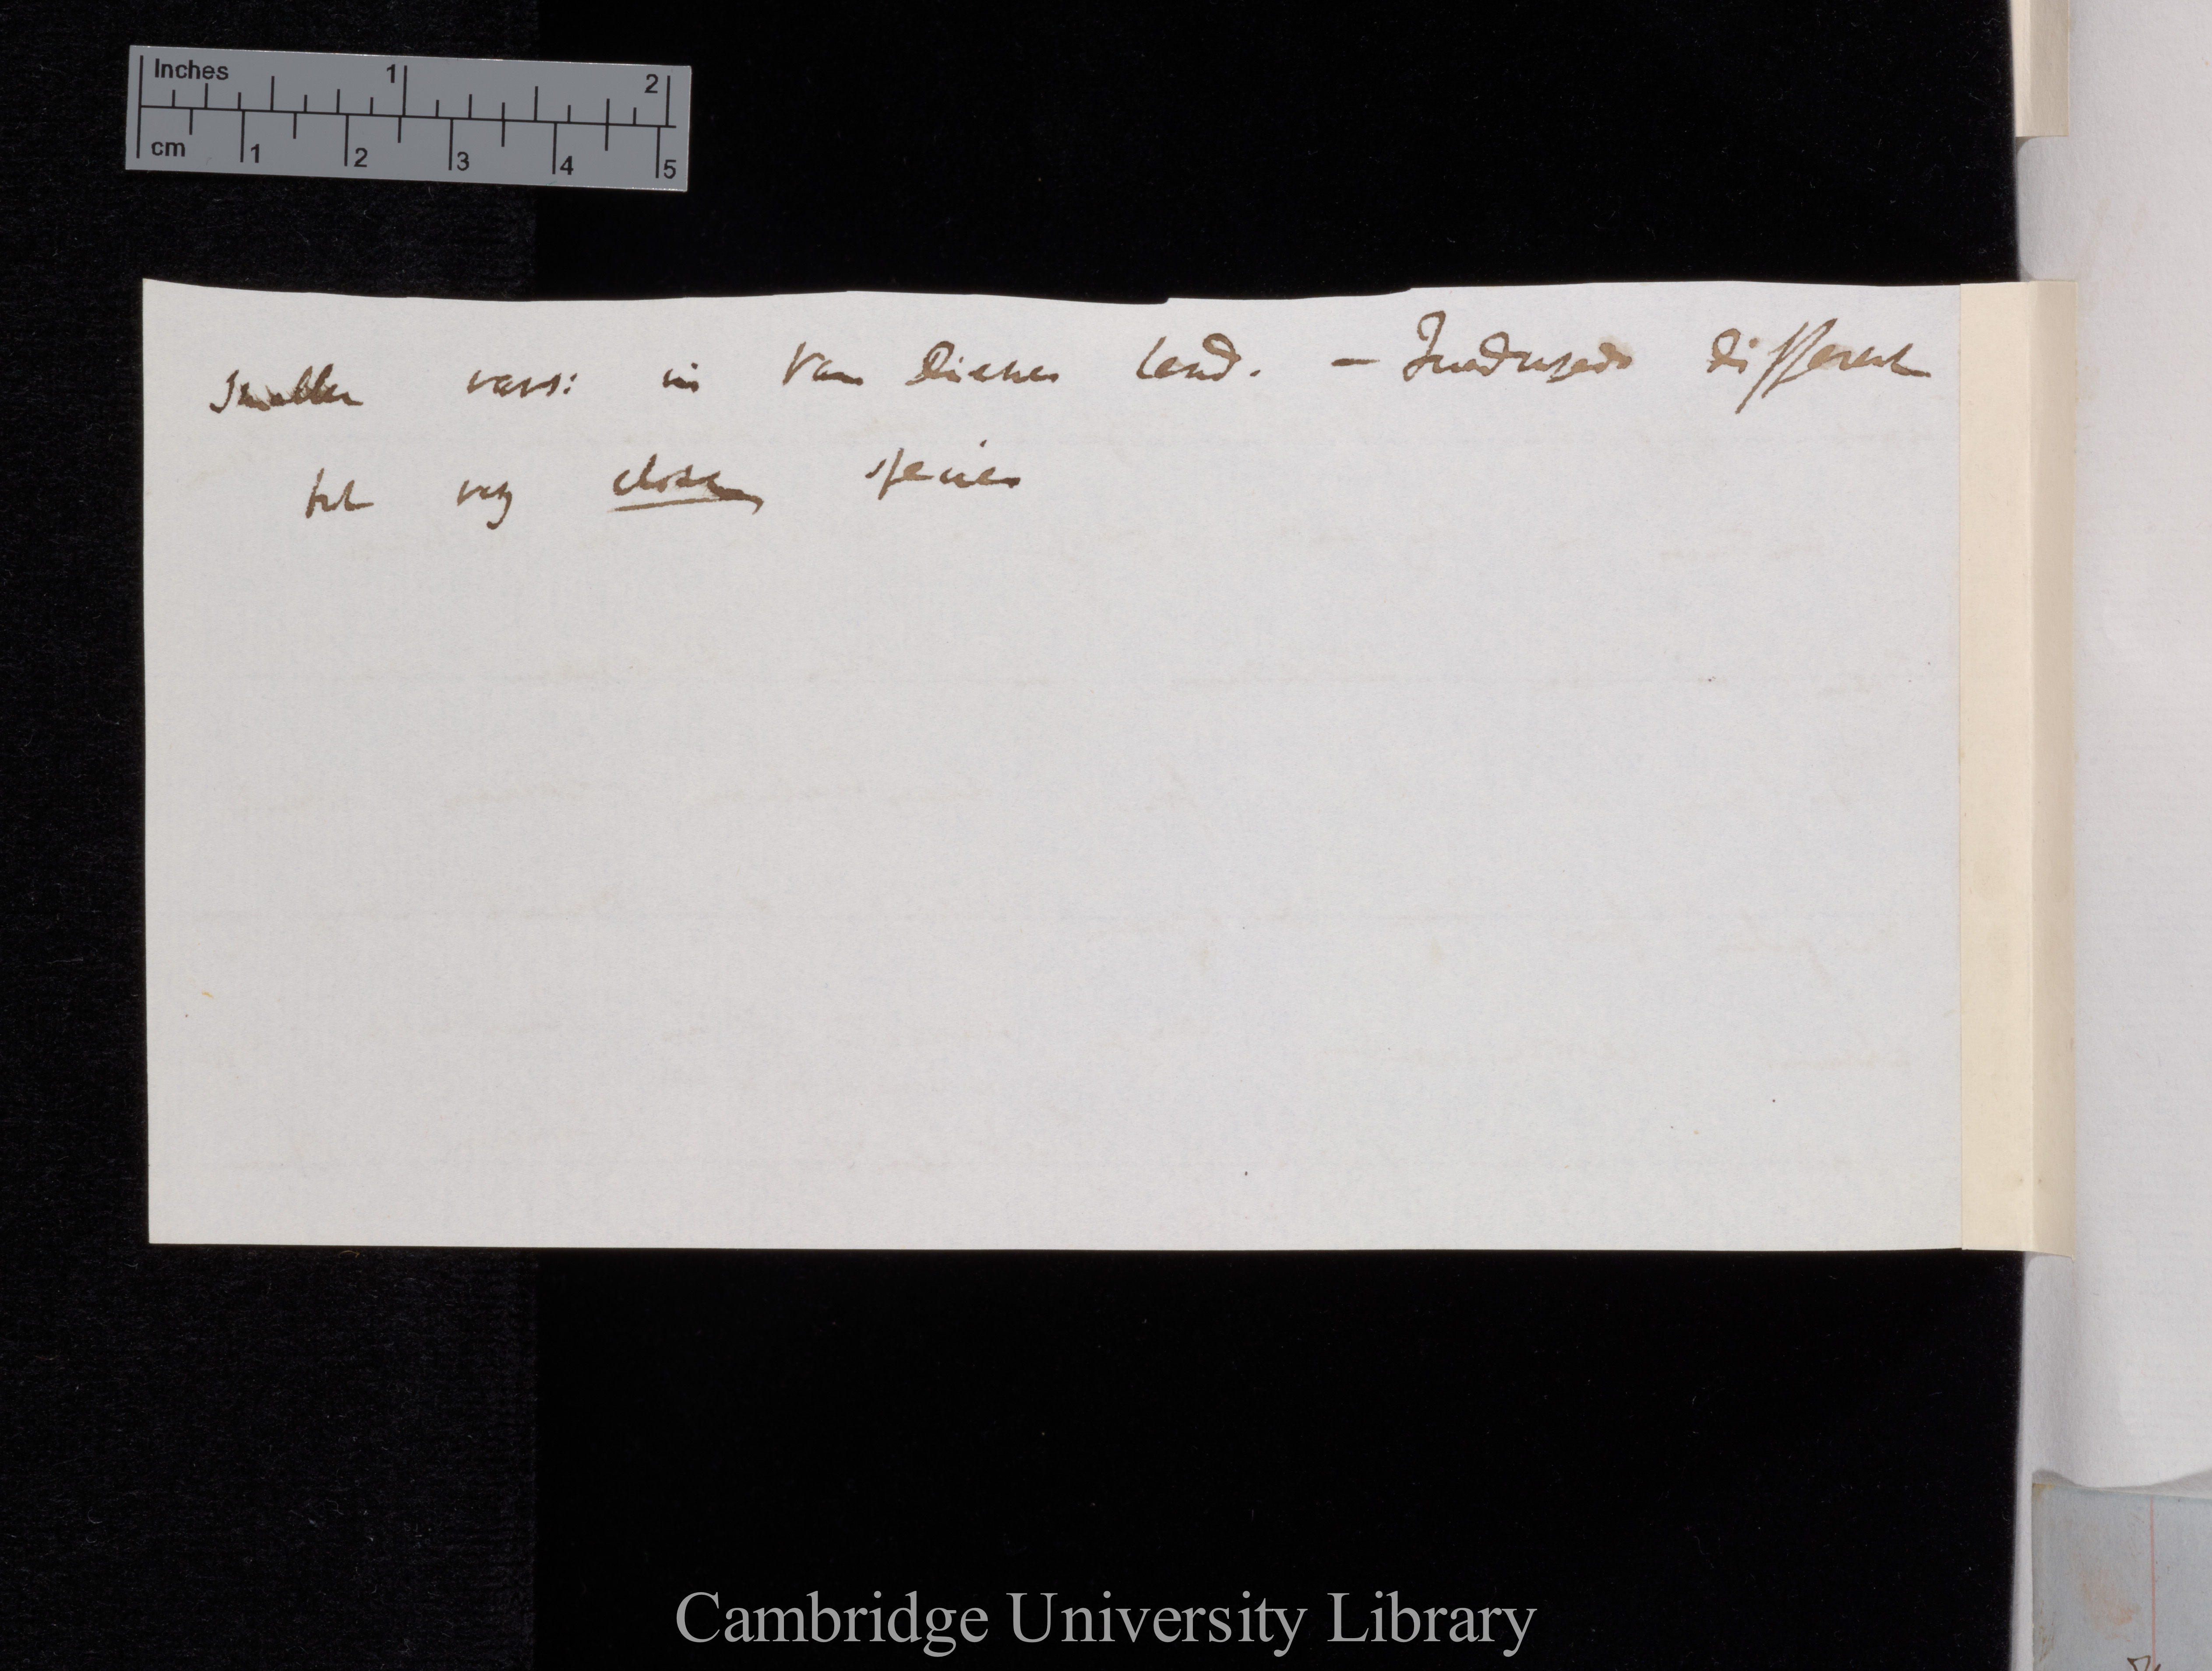 Inches 1 2
cm 1 2 3 4 5
Smaller vars: in Van Diemen Land. — Quadrupeds different
but very close species
Cambridge University Library